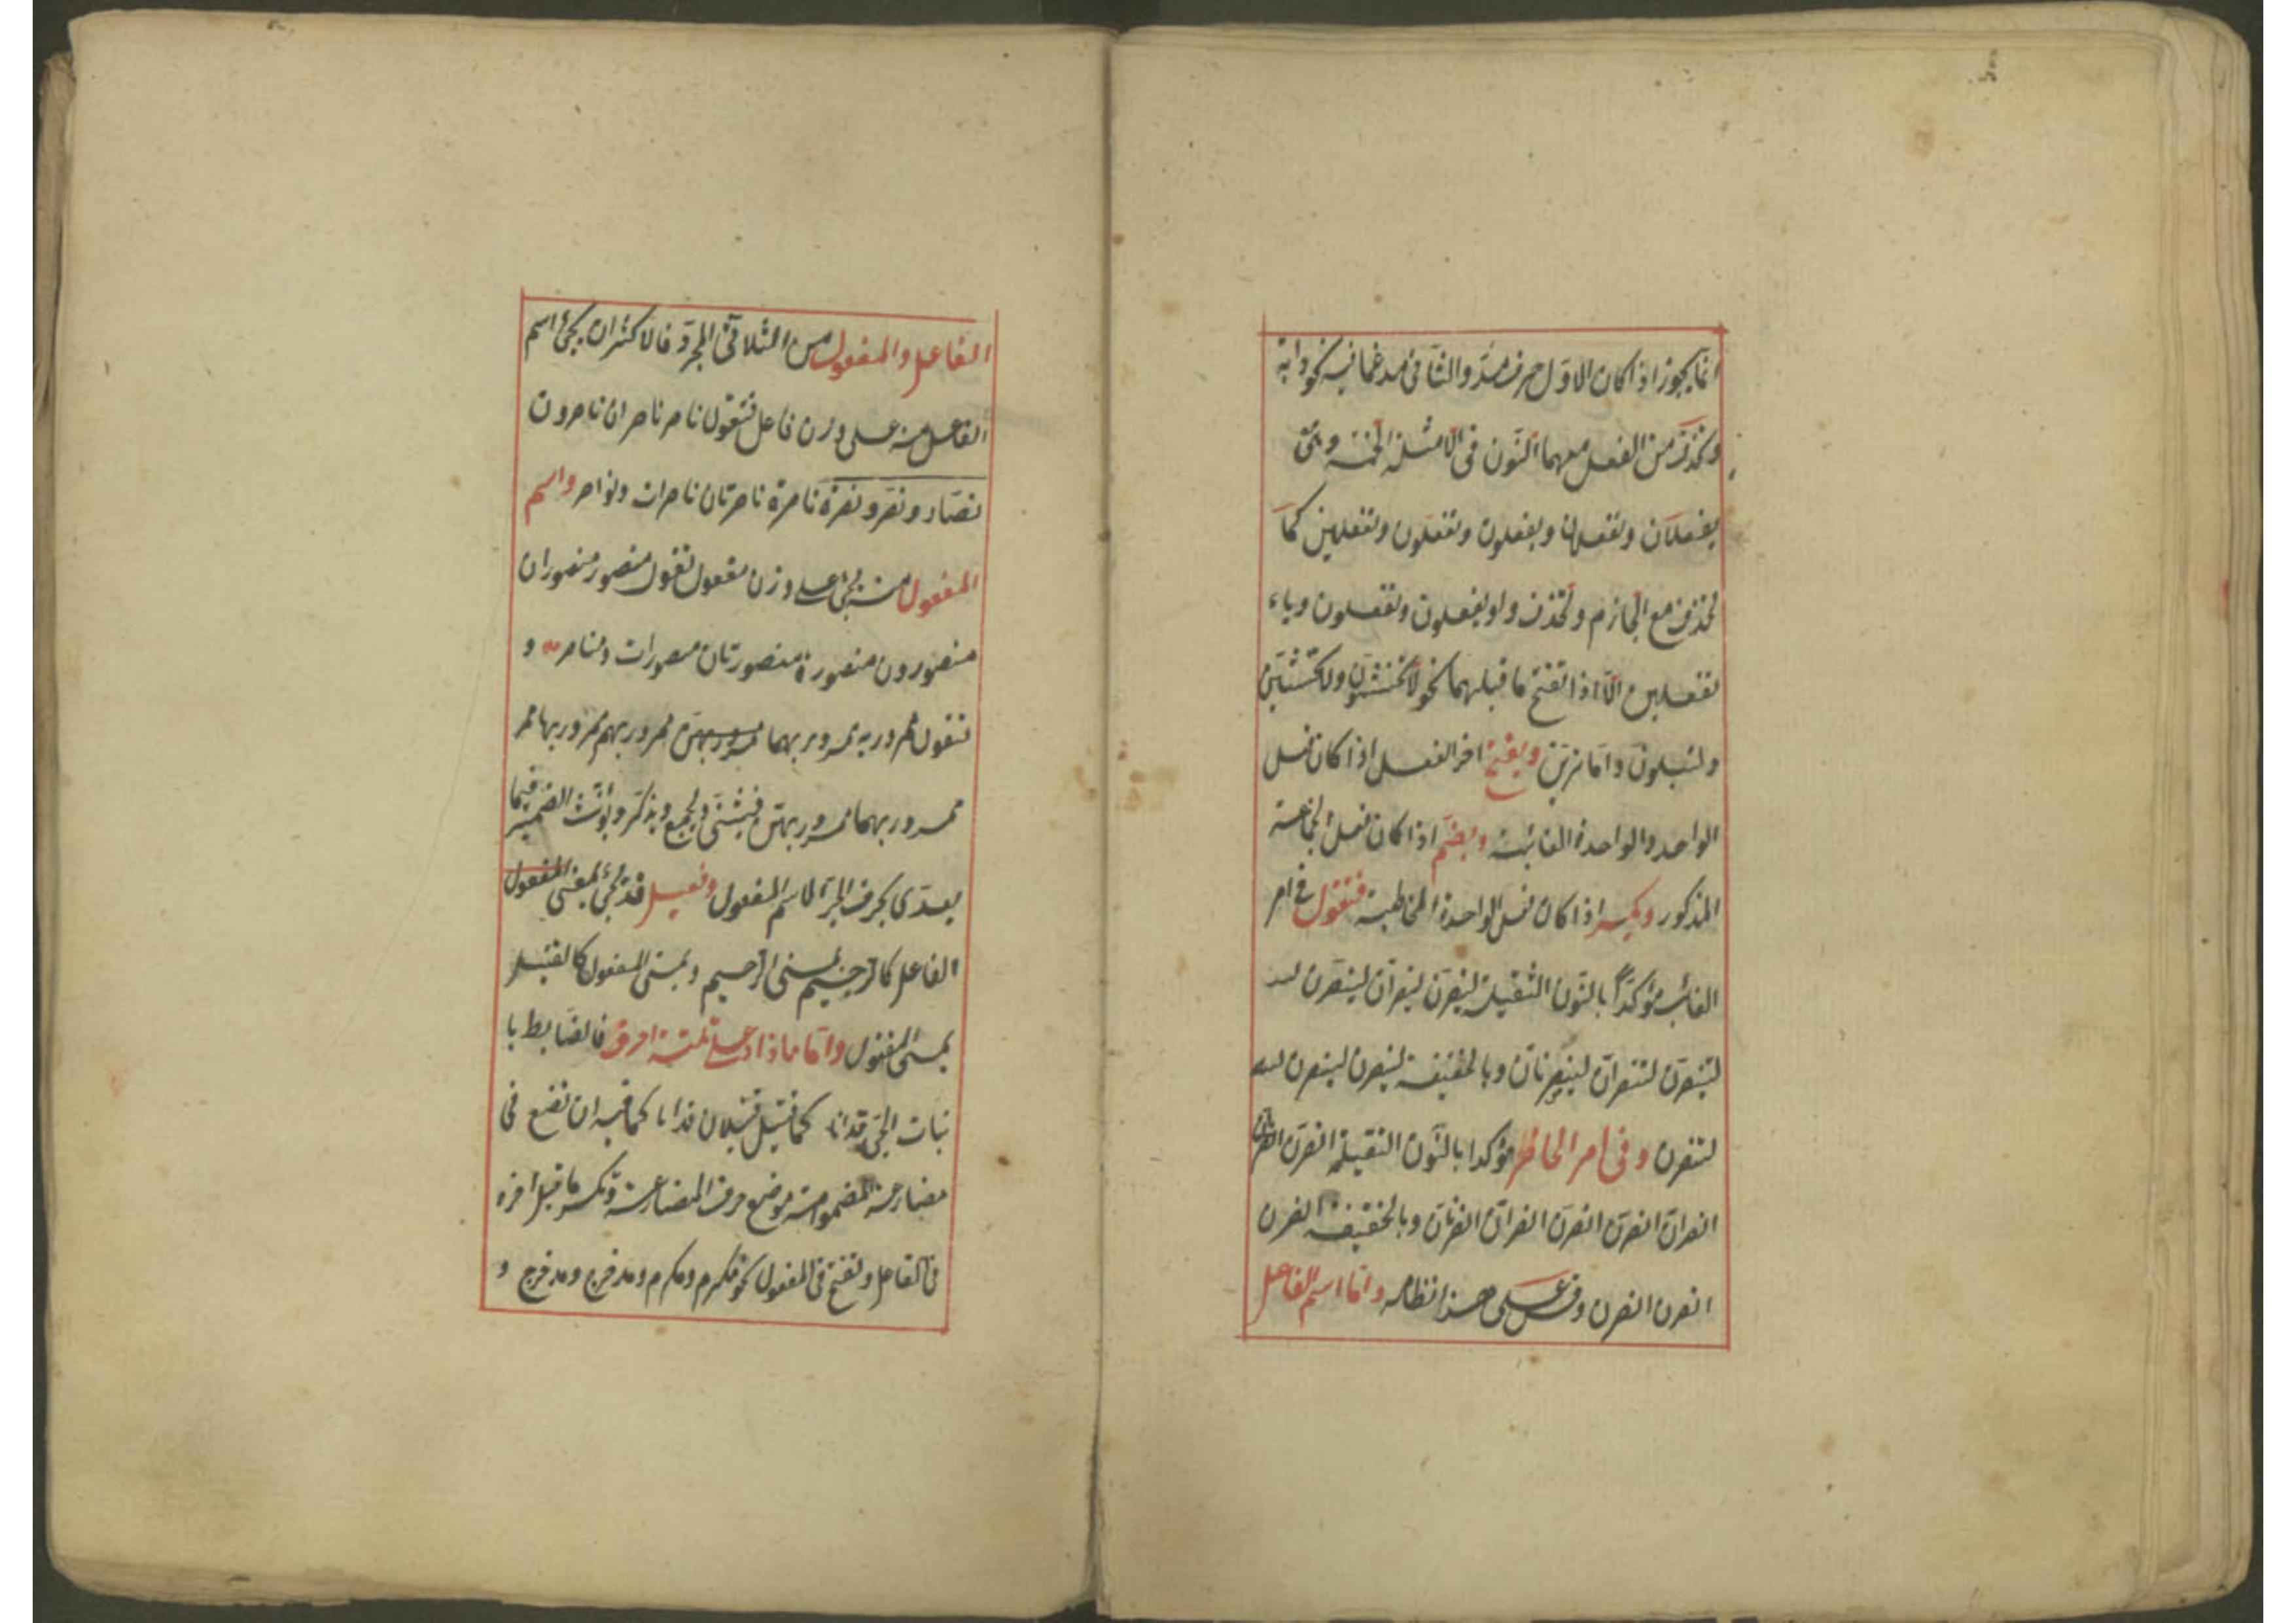 انّما يجوز اذا كان الاوّل حرف مدّ والثّانى مدغما فيه نحو دابّة
وتحذف من الفعل معهما النّون فى الامثلة الخمسة وهى
يفعلان وتفعلان ويفعلون وتفعلون وتفعلين كما
تحذف مع الجازم وتحذف واو يفعلون وتفعلون وياء
تفعلين الّا اذا انفتح ما قبلهما نحو لا تخشونّ ولا تخشينّ
ولتبلونّ وامّا ترينّ ويفتح اخر الفعل اذا كان فعل
الواحد والواحدة الغائبة ويضمّ اذا كان فعل الجماعة
المذكور ويكسر اذا كان فعل الواحدة المخاطبة فتقول فى امر
الغائب مؤكّدا بالنّون الثّقيلة لينصرنّ لينصرانّ لينصرنّ
لتنصرنّ لتنصرانّ لينصرنانّ وبالخفيفة لينصرن لينصرن
لتنصرن وفى امر الحاظر مؤكدا بالنّون الثقيلة انصرنّ انصرانّ
انصرانّ انصرنّ انصرنّ انصرانّ انصرنانّ وبالخفيفة انصرن
انصرن انصرن وقس على هذا نظائره وامّا اسم الفاعل
الفاعل والمفعول من الثّلاثىّ المجرّد فالاكثر ان يجئ اسم
الفاعل منه على وزن فاعل فتقول ناصر ناصران ناصرون
نصّار ونصّر ونصرة ناصرة ناصرتان ناصرات ونواصر واسم
المفعول منه يجئ على وزن مفعول تقول منصور منصوران
منصورون منصورة منصورتان منصورات ومناصر و
تقول ممرور به ممرور بهما ممرور بهنّ ممرور بهم ممرور بها ممر
ممرور بهما ممرور بهنّ فيثنّى ويجمع ويذكّر ويؤنّث الضمير فيما
يعدّى بحرف الجرّ لا اسم المفعول وفعيل قد يجئ بمعنى المفعول
الفاعل كالرّحيم بمعنى الرّاحيم وبمعنى المفعول كالقتيل
بمعنى المقتول وامّا ما زاد على ثلثة احرف فالضّابط
كما قتيل قتيلان فيه ان تضع فى
مضارعة الميم المضمومة موضع حرف المضارعة وتكسر ما قبل اخره
فى الفاعل وتفتح فى المفعول نحو مكرم ومكرم ومدخرج ومدخرج و